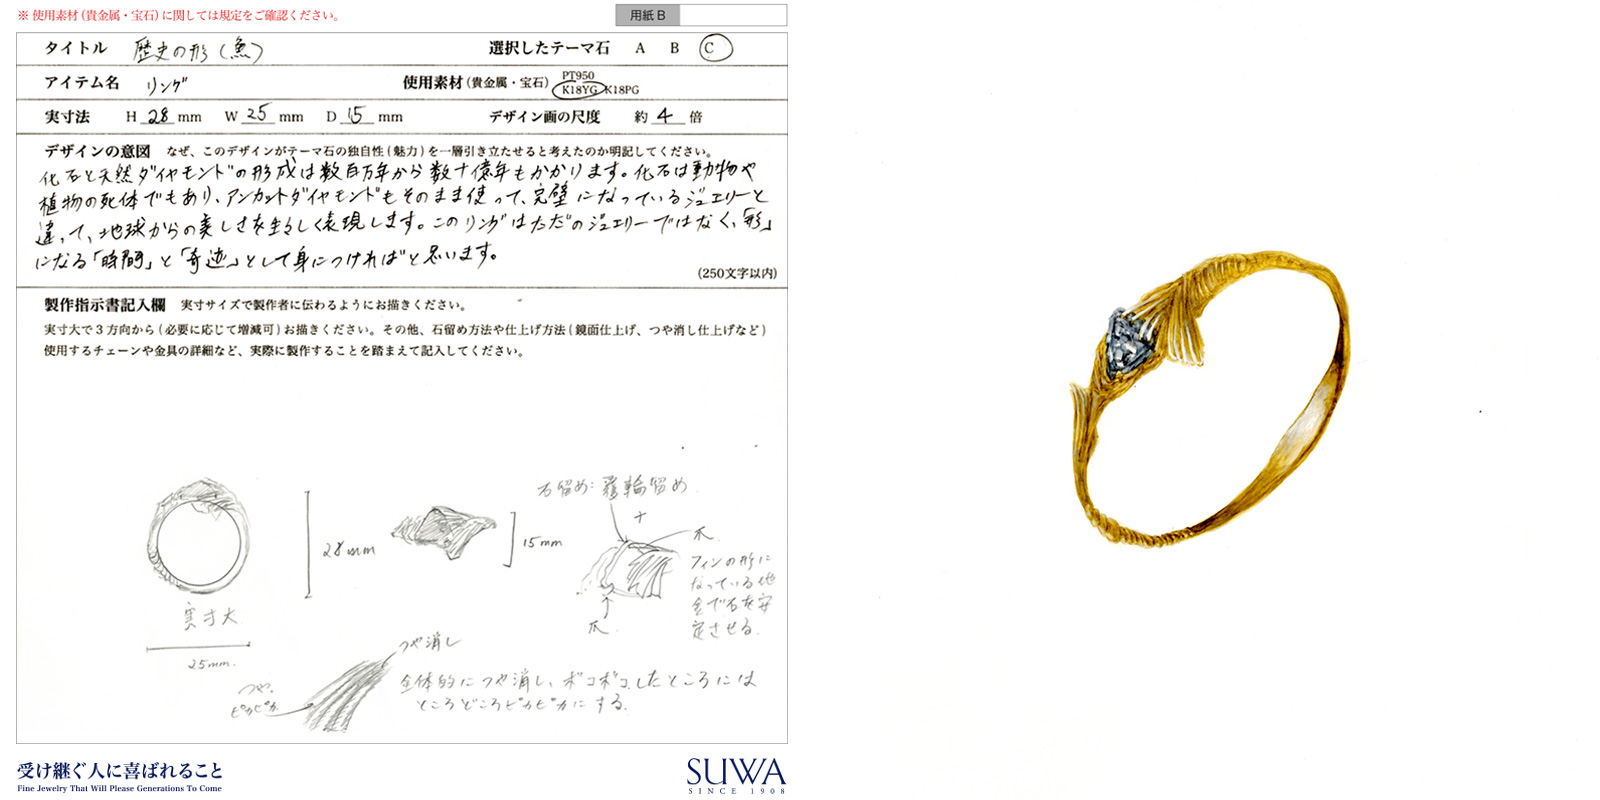 ※使用素材(貴金属・宝石)に関しては規定をご確認ください。
用紙 B
タイトル 歴史の形(魚) 選択したテーマ石 A B C
アイテム名 リング 使用素材(貴金属・宝石) PT950 K18YG K18PG
実寸法 H 28 mm W 25 mm D 15 mm デザイン画の尺度 約 4 倍
デザインの意図 なぜ、このデザインがテーマ石の独自性(魅力)を一層引き立たせると考えたのか明記してください。
化石と天然ダイヤモンドの形成は数百万年から数十億年もかかります。化石は動物や
植物の死体でもあり、アンカットダイヤモンドもそのまま使って、完璧になっているジュエリーと
違って、地球からの美しさを生々しく表現します。このリングはただのジュエリーではなく、「形」
になる「時間」と「奇迹」として身につければと思います。
(250文字以内)
製作指示書記入欄 実寸サイズで製作者に伝わるようにお描きください。
実寸大で3方向から(必要に応じて増減可)お描きください。その他、石留め方法や仕上げ方法(鏡面仕上げ、つや消し仕上げなど)
使用するチェーンや金具の詳細など、実際に製作することを踏まえて記入してください。
石留め:覆輪留め
+
爪
28mm
15mm
フィンの形に
なっている地
金で石を安
定させる。
爪
実寸大
25mm.
つや消し
つや.
ピカピカ
全体的につや消し、ボコボコしたところには
ところどころピカピカにする。
受け継ぐ人に喜ばれること
Fine Jewelry That Will Please Generations To Come
SUWA
SINCE 1908